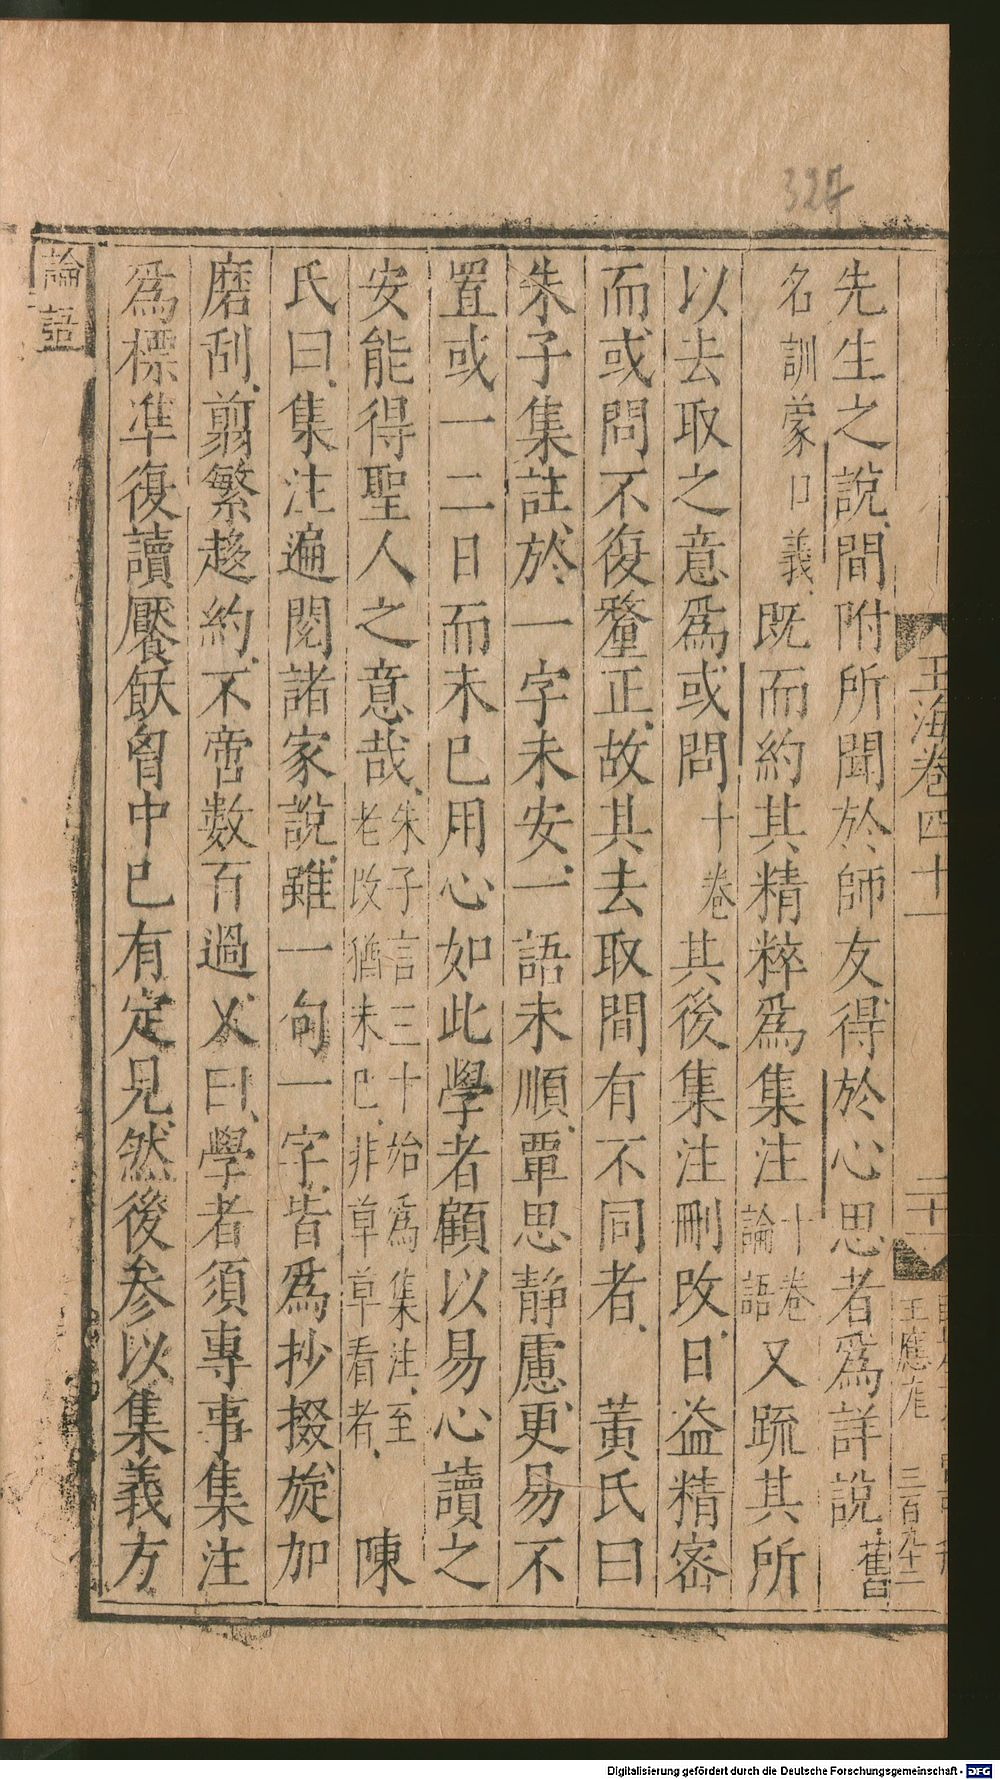 327
玉海卷四十一
二十一
王應
三百九十二
先生之說間附所聞於師友得於心思者爲詳說舊
名訓蒙口義既而約其精粹爲集注十卷論語又疏其所
以去取之意爲或問十卷其後集注刪改日益精密
而或問不復釐正故其去取間有不同者黃氏曰
朱子集註於一字未安一語未順覃思静慮更易不
置或一二日而未已用心如此學者顧以易心讀之
安能得聖人之意哉朱子言三十始爲集注至老改猶未已非草草看者陳
氏曰集注遍閱諸家說雖一句一字皆爲抄掇旋加
磨刮翦繁趍約不啻數百過乂曰學者須專事集注
爲標準復讀饜飫胷中已有定見然後参以集義方
論語
Digitalisierung gefördert durch die Deutsche Forschungsgemeinschaft - DFG